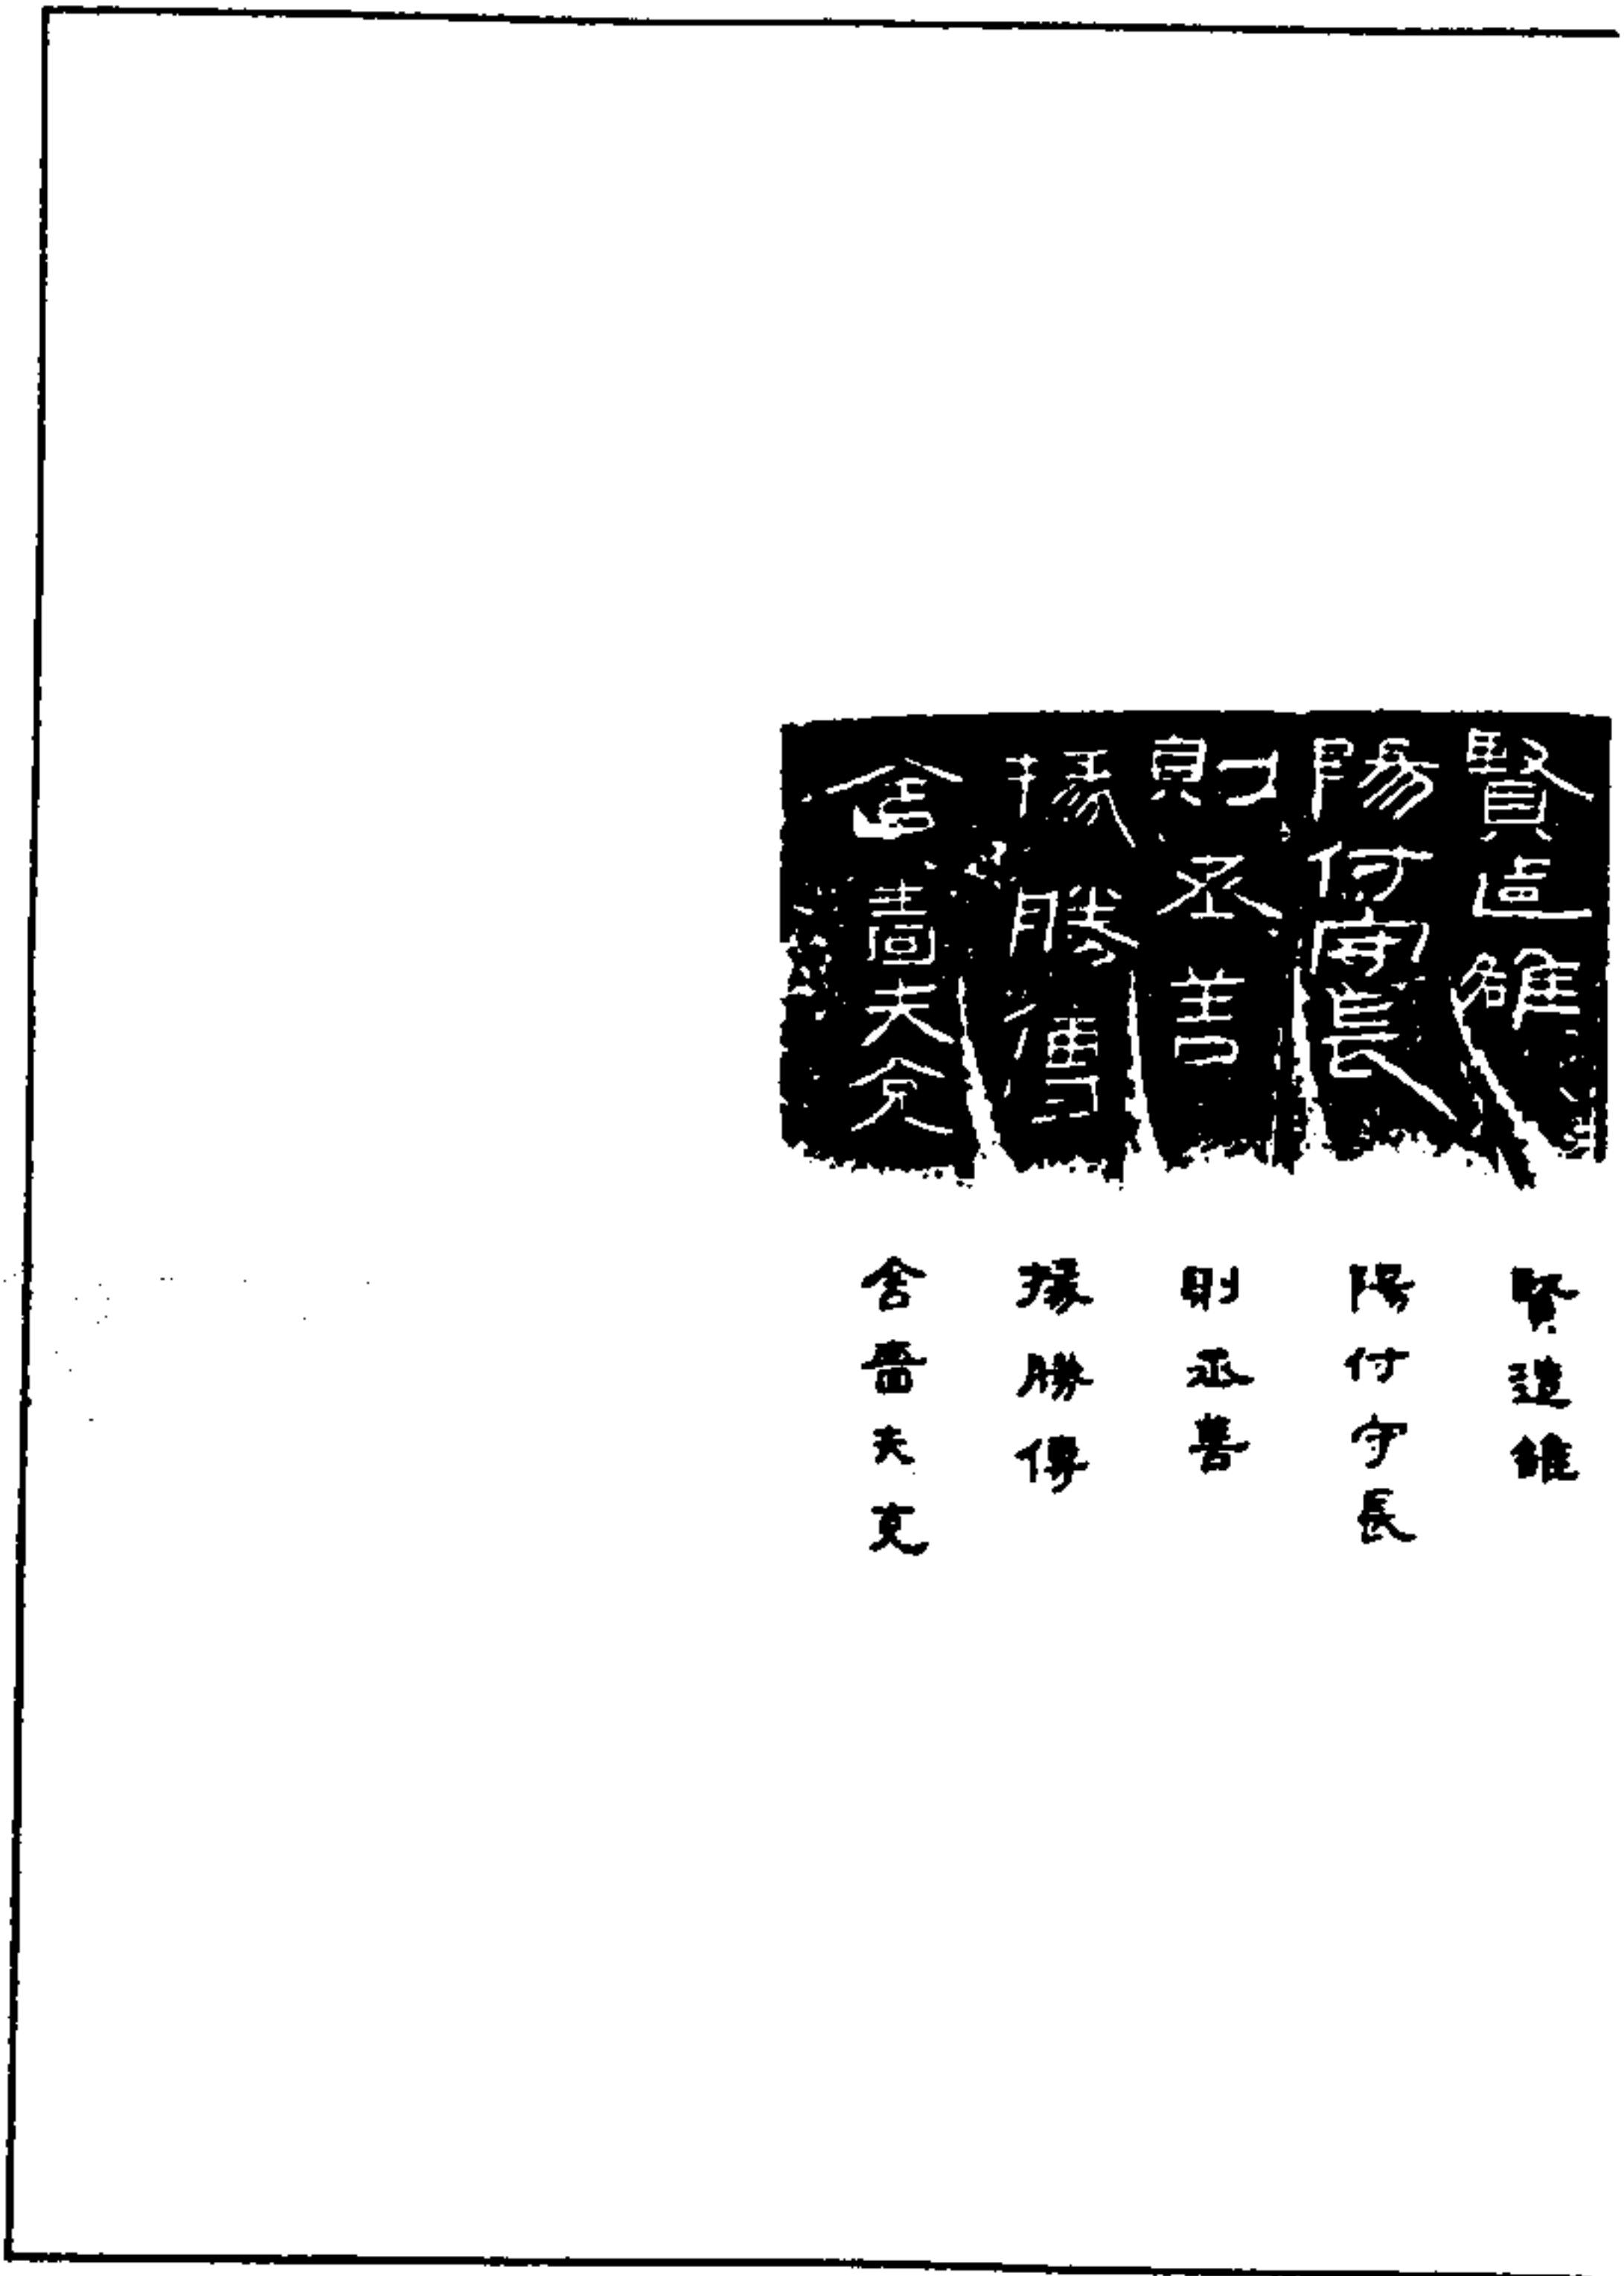 賢造雒
陽付守長
則丞善
掾勝傳
舍嗇夫兌
賢造雒
陽付守長
則丞善
掾勝傳
舍嗇夫兌